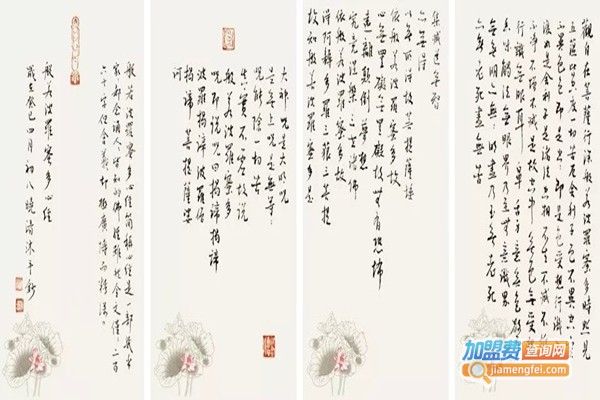 觀自在菩薩行深般若波羅蜜多時照見
五蘊皆空度一切苦厄舍利子色不異空空
不異色色即是空空即是色受想行識
亦復如是舍利子是諸法空相不生不滅不垢
不淨不增不減是故空中無色無受
想行識無眼耳鼻舌身意無色聲
香味觸法無眼界乃至無意識界
無無明亦無無明盡乃至無老死
亦無老死盡無苦
集滅道無智
亦無得
以無所得故菩提薩埵
依般若波羅蜜多故
心無罣礙無罣礙故無有恐怖
遠離顛倒夢想
究竟涅槃三世諸佛
依般若波羅蜜多故
得阿耨多羅三藐三菩提
故知般若波羅蜜多是
大神咒是大明咒
是無上咒是無等等
咒能除一切苦
真實不虛故說
般若波羅蜜多
咒即說咒曰揭諦揭諦
波羅揭諦波羅僧
揭諦菩提薩婆
訶
般若波羅蜜多心經
般若波羅蜜多心經簡稱心經是一部
歲在癸巳四月初八
加盟费查询网
jiamengfei.com